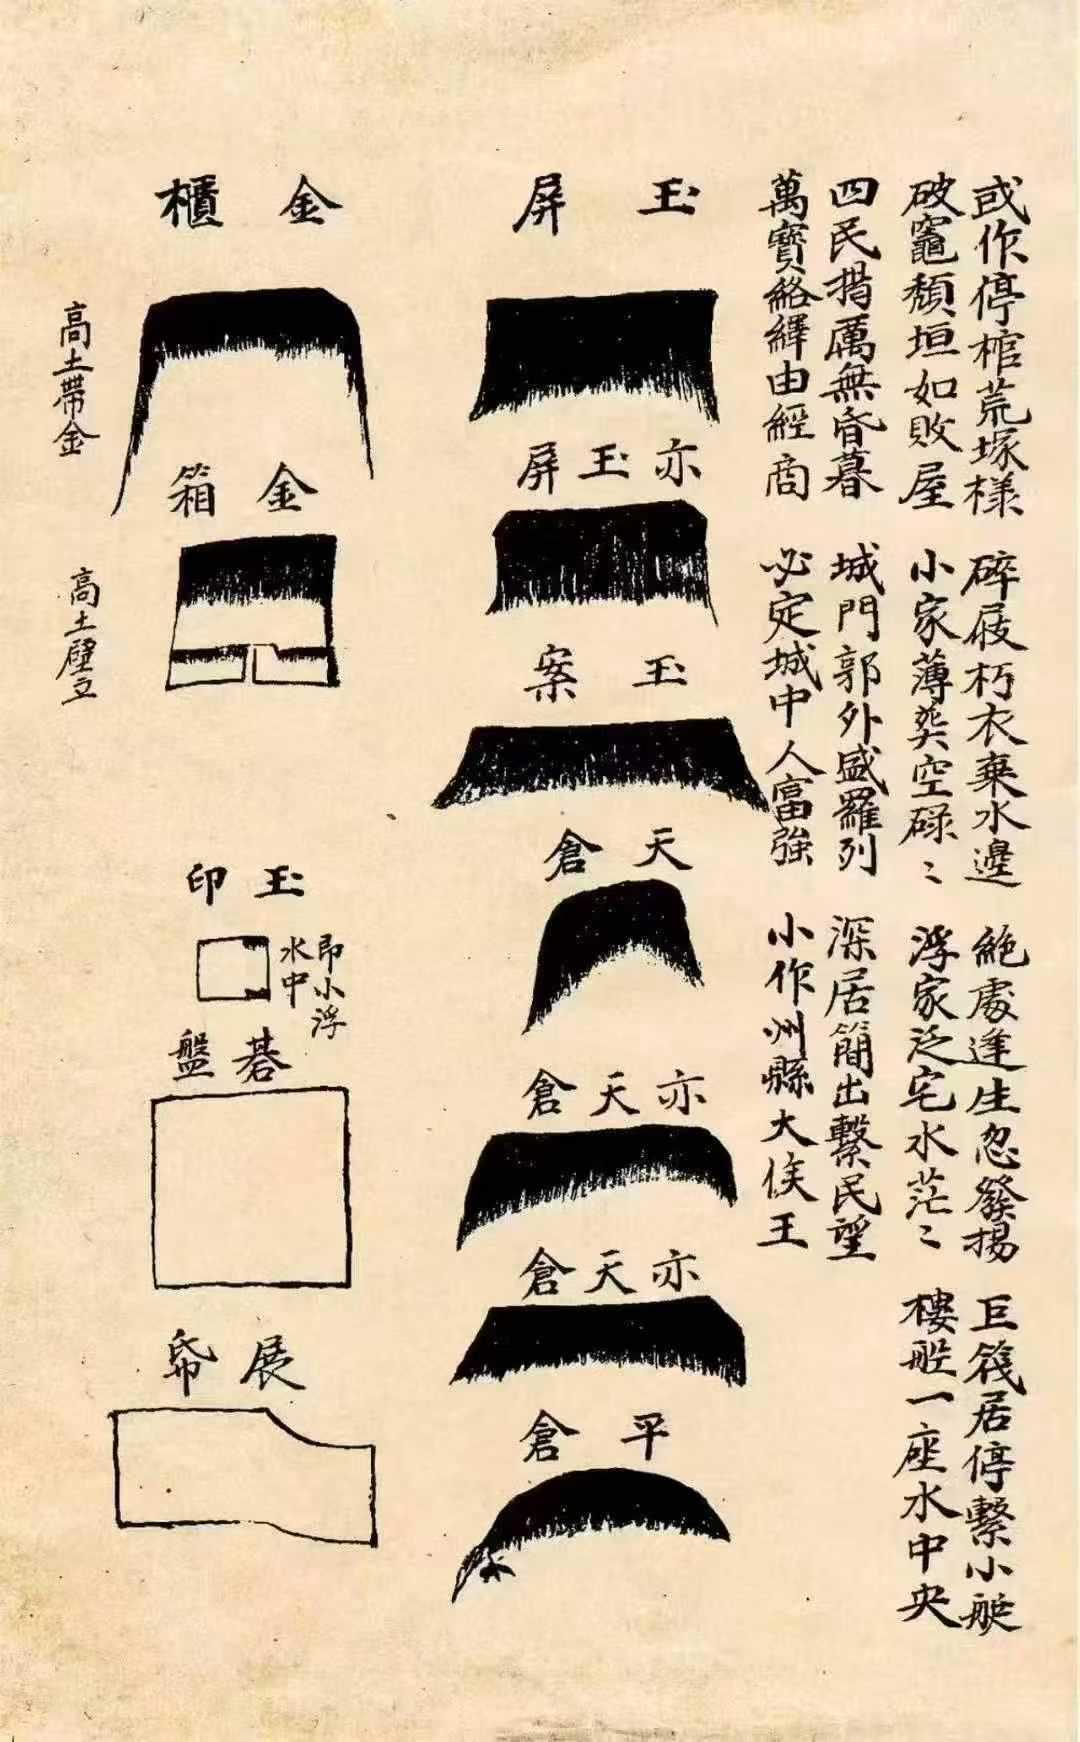 或作停棺荒塚樣　碎屐朽衣棄水邊　絕處逢生忽發揚　巨筏居停繫小艇
破竈頹垣如敗屋　小家薄葬空碌〻　浮家泛宅水茫〻　樓船一座水中央
四民揭厲無昏暮　城門郭外盛羅列　深居簡出繫民望
萬寶絡繹由經商　必定城中人富強　小作州縣大侯王
玉屏
亦玉屏
玉案
天倉
亦天倉
亦天倉
平倉
金櫃
高土帶金
金箱
高土壁立
玉印
即小浮
水中
碁盤
展帋